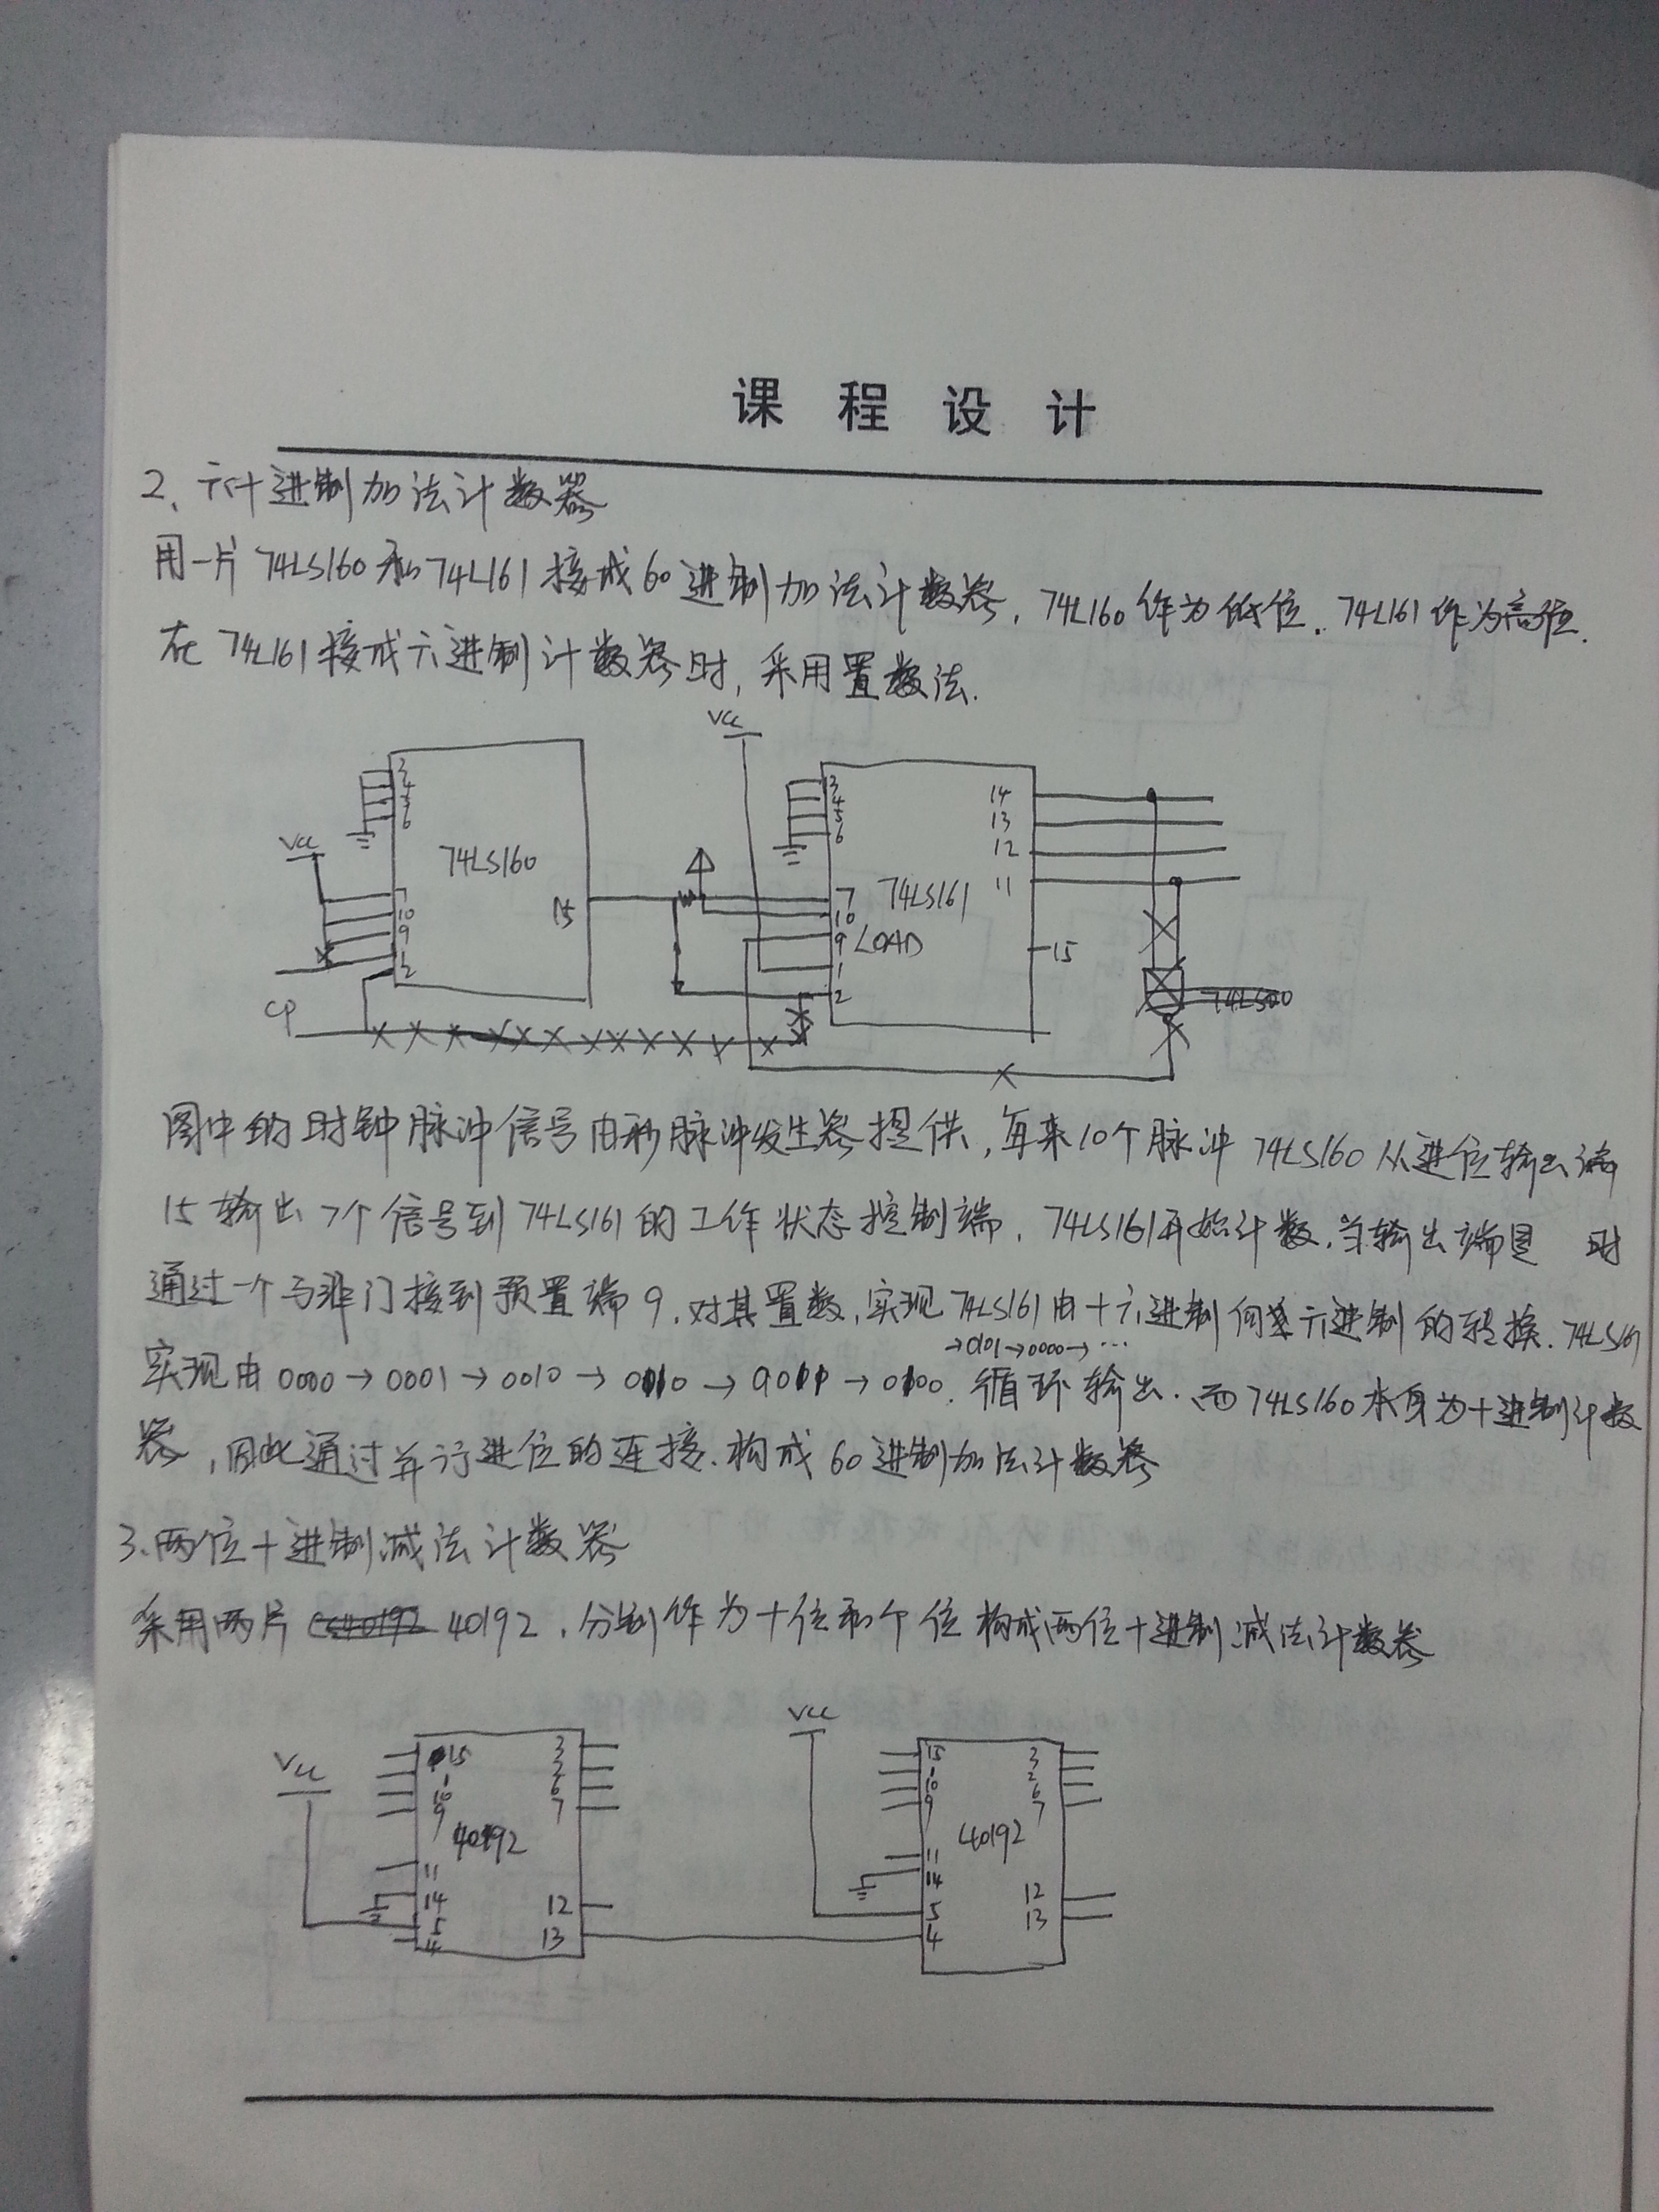 课程设计
2、六十进制加法计数器
用一片74LS160和74L161接成60进制加法计数器,74L160作为低位.74L161作为高位.
在74L161接成六进制计数器时,采用置数法.
Vcc
3 4 5 6
3 4 5 6
14
13
12
11
Vcc
74LS160
15
7 10 9 1 2
74LS161
7 10 9 LOAD 1 2
15
74LS00
CP
图中的时钟脉冲信号由秒脉冲发生器提供,每来10个脉冲74LS160从进位输出端
15输出个信号到74LS161的工作状态控制端,74LS161开始计数,当输出端是 时
通过一个与非门接到预置端9,对其置数,实现74LS161由十六进制向六进制的转换.74LS161
→0101→0000→…
实现由0000→0001→0010→→→0100.循环输出.而74LS160本身为十进制计数
器,因此通过并行进位的连接.构成60进制加法计数器
3、两位十进制减法计数器
采用两片40192,分别作为十位和个位构成两位十进制减法计数器
Vcc
Vcc
15 1 10 9
3 2 6 7
15 1 10 9
3 2 6 7
40192
40192
11 14 5 4
12 13
11 14 5 4
12 13